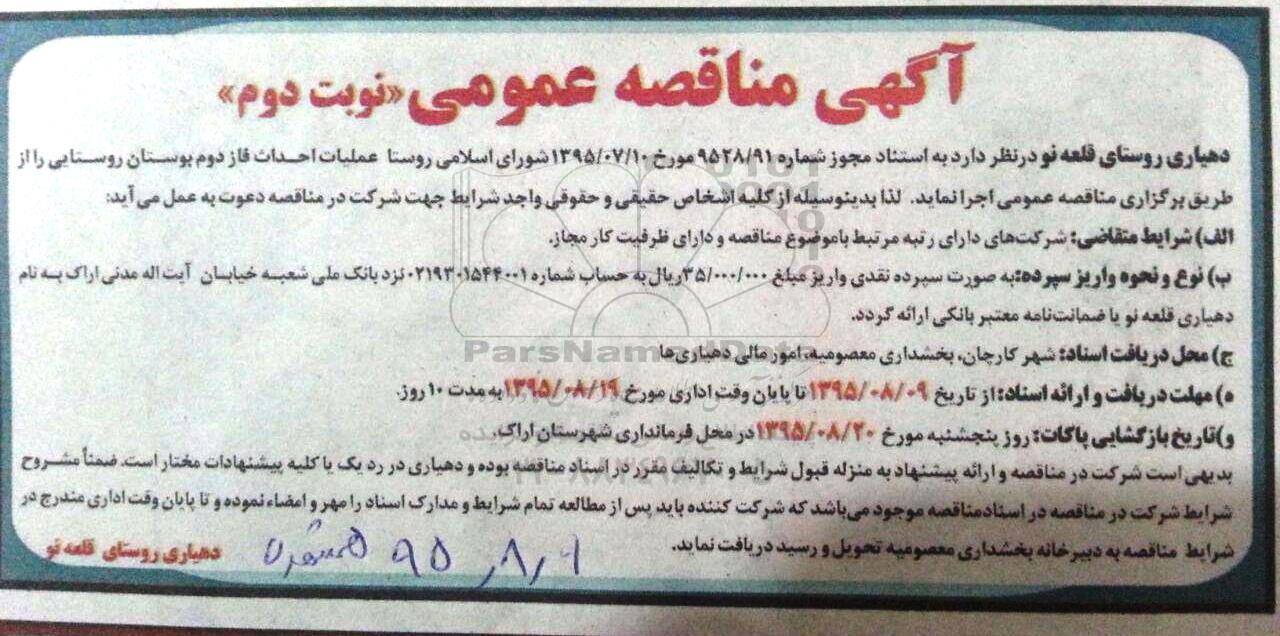 آگهی مناقصه عمومی «نوبت دوم»
دهیاری روستای قلعه نو درنظر دارد به استناد مجوز شماره ۹۵۲۸/۹۱ مورخ ۱۳۹۵/۰۷/۱۰ شورای اسلامی روستا عملیات احداث فاز دوم بوستان روستایی را از
طریق برگزاری مناقصه عمومی اجرا نماید. لذا بدینوسیله از کلیه اشخاص حقیقی و حقوقی واجد شرایط جهت شرکت در مناقصه دعوت به عمل می آید:
الف) شرایط متقاضی: شرکت‌های دارای رتبه مرتبط باموضوع مناقصه و دارای ظرفیت کار مجاز.
ب) نوع و نحوه واریز سپرده: به صورت سپرده نقدی واریز مبلغ ۳۵/۰۰۰/۰۰۰ ریال به حساب شماره ۰۲۱۹۳۰۱۵۴۴۰۰۱ نزد بانک ملی شعبه خیابان آیت اله مدنی اراک به نام
دهیاری قلعه نو یا ضمانت‌نامه معتبر بانکی ارائه گردد.
ج) محل دریافت اسناد: شهر کارچان، بخشداری معصومیه، امور مالی دهیاری‌ها
ه) مهلت دریافت و ارائه اسناد: از تاریخ ۱۳۹۵/۰۸/۰۹ تا پایان وقت اداری مورخ ۱۳۹۵/۰۸/۱۹ به مدت ۱۰ روز.
و) تاریخ بازگشایی پاکات: روز پنجشنبه مورخ ۱۳۹۵/۰۸/۲۰ در محل فرمانداری شهرستان اراک.
بدیهی است شرکت در مناقصه و ارائه پیشنهاد به منزله قبول شرایط و تکالیف مقرر در اسناد مناقصه بوده و دهیاری در رد یک یا کلیه پیشنهادات مختار است. ضمناً مشروح
شرایط شرکت در مناقصه در اسناد مناقصه موجود می‌باشد که شرکت کننده باید پس از مطالعه تمام شرایط و مدارک اسناد را مهر و امضاء نموده و تا پایان وقت اداری مندرج در
شرایط مناقصه به دبیرخانه بخشداری معصومیه تحویل و رسید دریافت نماید.
دهیاری روستای قلعه نو
همشهری ۹۵٫۸٫۹
ParsNamadData